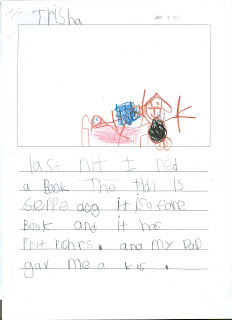 Trisha
last nit I red
a Book The tidl is
Sleppe dog it is a fone
Book and it has
Prit pichrs. and my Dad
gav me a kis.